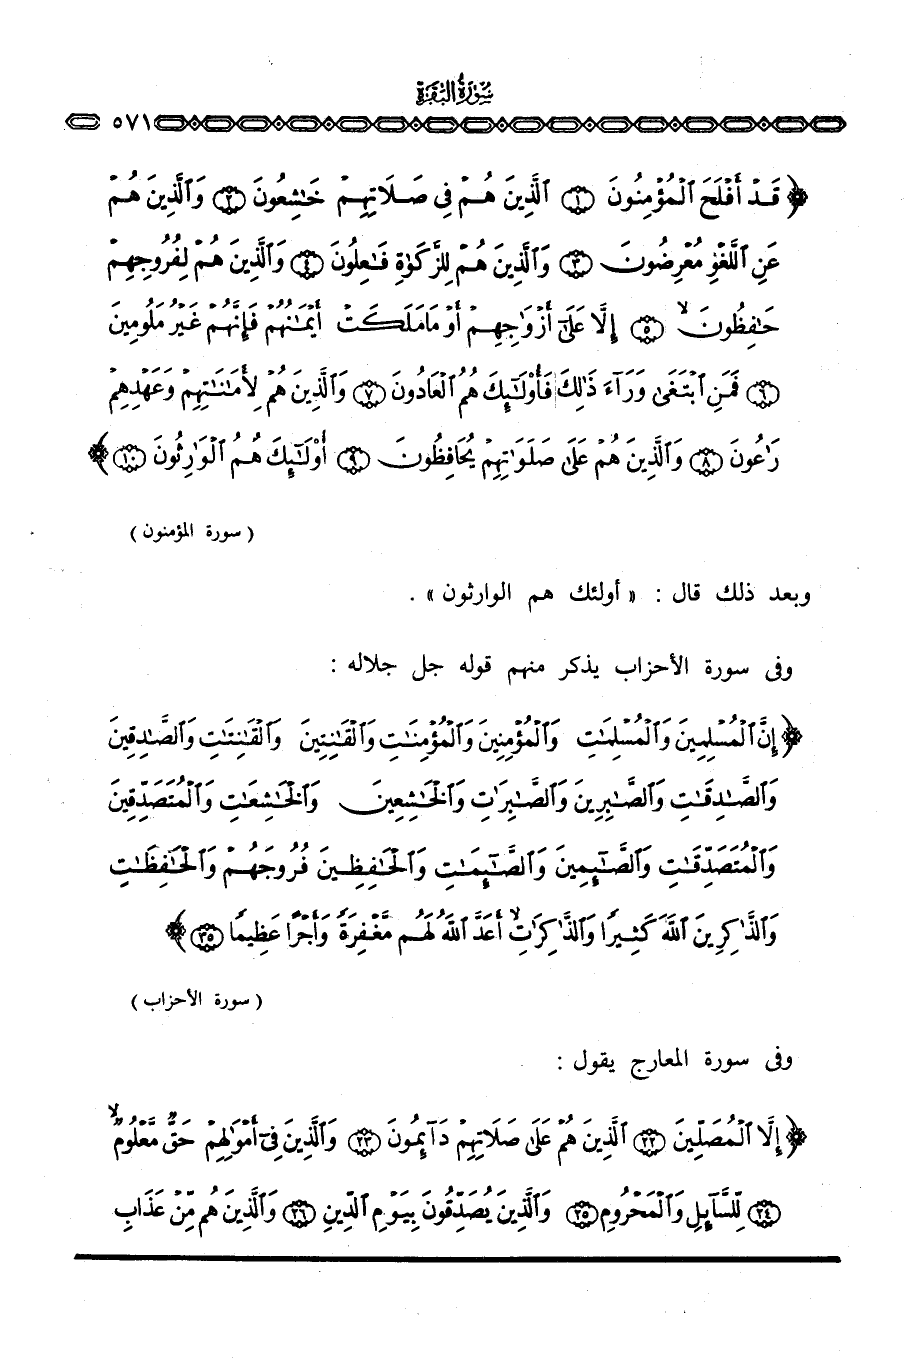 سُورَةُ البَقَرَة
٥٧١
﴿ قَدْ أَفْلَحَ ٱلْمُؤْمِنُونَ ۝١ ٱلَّذِينَ هُمْ فِى صَلَاتِهِمْ خَٰشِعُونَ ۝٢ وَٱلَّذِينَ هُمْ
عَنِ ٱللَّغْوِ مُعْرِضُونَ ۝٣ وَٱلَّذِينَ هُمْ لِلزَّكَوٰةِ فَٰعِلُونَ ۝٤ وَٱلَّذِينَ هُمْ لِفُرُوجِهِمْ
حَٰفِظُونَ ۙ ۝٥ إِلَّا عَلَىٰٓ أَزْوَٰجِهِمْ أَوْ مَا مَلَكَتْ أَيْمَٰنُهُمْ فَإِنَّهُمْ غَيْرُ مَلُومِينَ
۝٦ فَمَنِ ٱبْتَغَىٰ وَرَآءَ ذَٰلِكَ فَأُو۟لَٰٓئِكَ هُمُ ٱلْعَادُونَ ۝٧ وَٱلَّذِينَ هُمْ لِأَمَٰنَٰتِهِمْ وَعَهْدِهِمْ
رَٰعُونَ ۝٨ وَٱلَّذِينَ هُمْ عَلَىٰ صَلَوَٰتِهِمْ يُحَافِظُونَ ۝٩ أُو۟لَٰٓئِكَ هُمُ ٱلْوَٰرِثُونَ ۝١٠ ﴾
( سورة المؤمنون )
وبعد ذلك قال : « أولئك هم الوارثون » .
وفى سورة الأحزاب يذكر منهم قوله جل جلاله :
﴿ إِنَّ ٱلْمُسْلِمِينَ وَٱلْمُسْلِمَٰتِ وَٱلْمُؤْمِنِينَ وَٱلْمُؤْمِنَٰتِ وَٱلْقَٰنِتِينَ وَٱلْقَٰنِتَٰتِ وَٱلصَّٰدِقِينَ
وَٱلصَّٰدِقَٰتِ وَٱلصَّٰبِرِينَ وَٱلصَّٰبِرَٰتِ وَٱلْخَٰشِعِينَ وَٱلْخَٰشِعَٰتِ وَٱلْمُتَصَدِّقِينَ
وَٱلْمُتَصَدِّقَٰتِ وَٱلصَّٰٓئِمِينَ وَٱلصَّٰٓئِمَٰتِ وَٱلْحَٰفِظِينَ فُرُوجَهُمْ وَٱلْحَٰفِظَٰتِ
وَٱلذَّٰكِرِينَ ٱللَّهَ كَثِيرًا وَٱلذَّٰكِرَٰتِ ۙ أَعَدَّ ٱللَّهُ لَهُم مَّغْفِرَةً وَأَجْرًا عَظِيمًا ۝٣٥ ﴾
( سورة الأحزاب )
وفى سورة المعارج يقول :
﴿ إِلَّا ٱلْمُصَلِّينَ ۝٢٢ ٱلَّذِينَ هُمْ عَلَىٰ صَلَاتِهِمْ دَآئِمُونَ ۝٢٣ وَٱلَّذِينَ فِىٓ أَمْوَٰلِهِمْ حَقٌّ مَّعْلُومٌ ۙ
۝٢٤ لِّلسَّآئِلِ وَٱلْمَحْرُومِ ۝٢٥ وَٱلَّذِينَ يُصَدِّقُونَ بِيَوْمِ ٱلدِّينِ ۝٢٦ وَٱلَّذِينَ هُم مِّنْ عَذَابِ